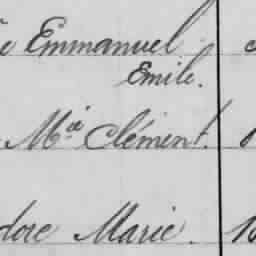 Emmanuel
Emile.
Mie Clément.
dore Marie.